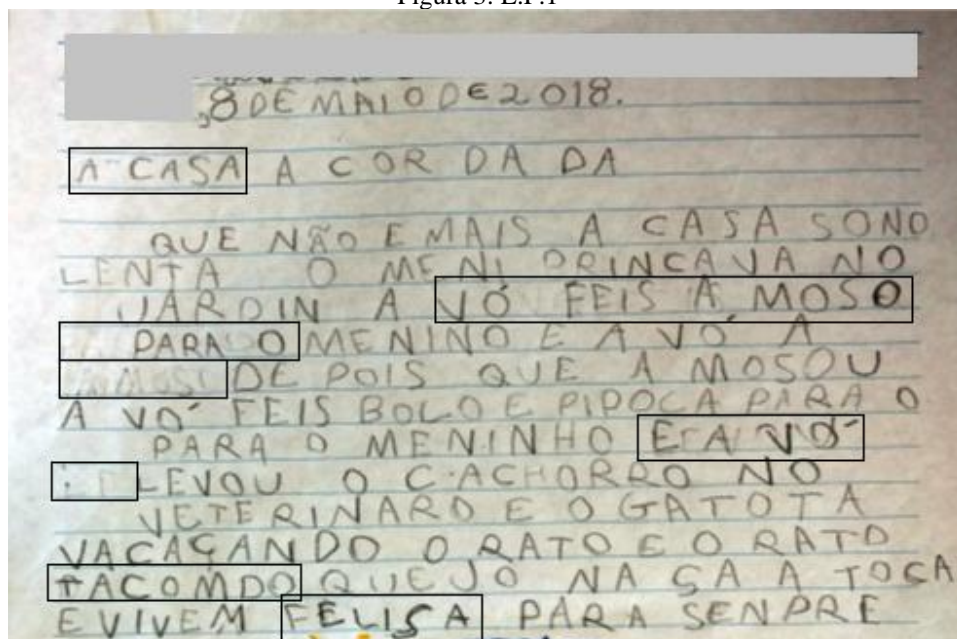 Figura 3: E.P.1
,8 DE MAIO DE 2018.
A CASA A COR DA DA
QUE NÃO E MAIS A CASA SONO
LENTA O MENI PRINCAVA NO
JARDIN A VÓ FEIS A MOSO
PARA O MENINO E A VÓ A
DE POIS QUE A MOSOU
A VÓ FEIS BOLO E PIPOCA PARA O
PARA O MENINHO E A VÓ
LEVOU O CACHORRO NO
VETERINARO E O GATO TA
VACAÇANDO O RATO E O RATO
TACOMDO QUEJO NA ÇA A TOCA
E VIVEM FELISA PARA SENPRE